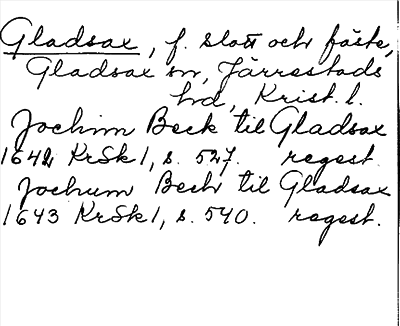 Gladsax, f. slott och fäste,
Gladsax sn, Järrestads
hd, Krist. l.
Jochim Beck til Gladsax
1642 KrSk1, s. 527. regest.
Jochum Bech til Gladsax
1643 KrSk1, s. 540. regest.